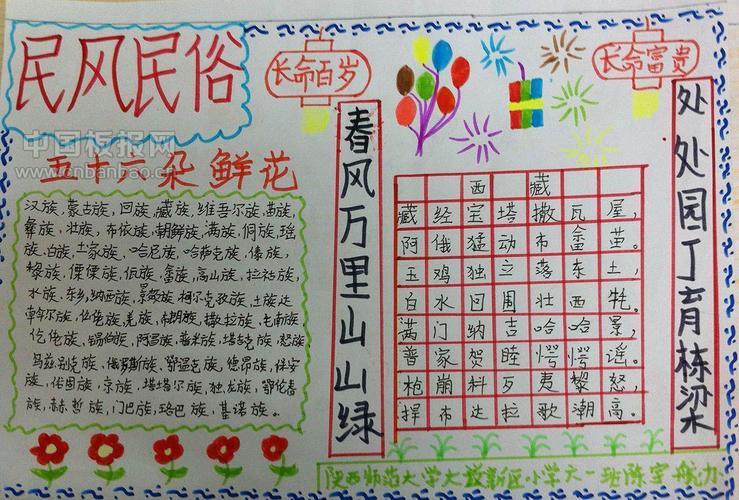 民风民俗
中国板报网
www.cnbanbao.cn
五十一朵鲜花
汉族,蒙古族,回族,藏族,维吾尔族,苗族,
彝族,壮族,布依族,朝鲜族,满族,侗族,瑶
族,白族,土家族,哈尼族,哈萨克族,傣族,
黎族,傈僳族,佤族,畲族,高山族,拉祜族,
水族,东乡,纳西族,景颇族,柯尔克孜族,土族达
斡尔族,仫佬族,羌族,布朗族,撒拉族,毛南族,
仡佬族,锡伯族,阿昌族,普米族,塔吉克族,怒族,
乌兹别克族,俄罗斯族,鄂温克族,德昂族,保安
族,裕固族,京族,塔塔尔族,独龙族,鄂伦春
族,赫哲族,门巴族,珞巴族,基诺族。
长命百岁
春风万里山山绿
西藏
藏经宝塔撒瓦屋,
阿俄猛动布畲苗。
玉鸡独立落东土,
白水回围壮西牝。
满门纳吉哈哈景,
普家贺睦愕愕谣。
枪崩料歹夷黎怒,
捍布达拉歌潮高。
长命富贵
处处园丁育栋梁
陕西师范大学大教新区小学六一班陈宇航力